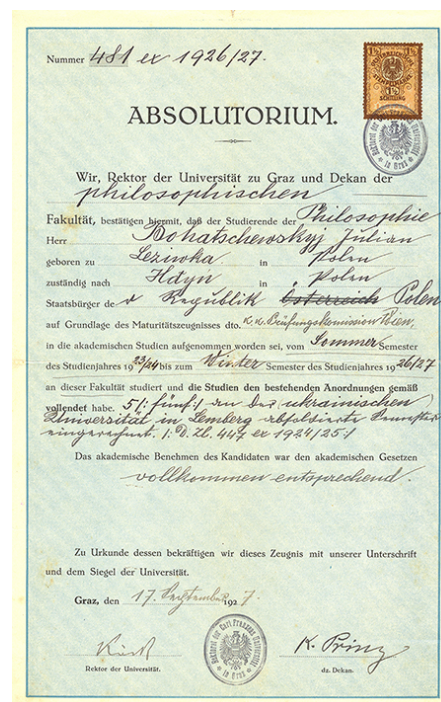 Nummer 481 ex 1926/27.
1½ 1½
ÖSTERREICHISCHE
STEMPELMARKE
1½
SCHILLING
ABSOLUTORIUM.
Wir, Rektor der Universität zu Graz und Dekan der
philosophischen
Fakultät, bestätigen hiermit, daß der Studierende der Philosophie
Herr Bohatschewskyj Julian
geboren zu in Polen
zuständig nach Hdyn in Polen
Staatsbürger der Republik Österreich Polen
auf Grundlage des Maturitätszeugnisses dto. k.k. Prüfungskommission Wien,
in die akademischen Studien aufgenommen worden sei, vom Sommer Semester
des Studienjahres 1923/24 bis zum Winter Semester des Studienjahres 1926/27
an dieser Fakultät studiert und die Studien den bestehenden Anordnungen gemäß
vollendet habe. 5 /: fünf :/ an der ukrainischen
Universität in Lemberg absolvierte Semester
eingerechnet. /: D. Zl. 447 ex 1924/25 :/
Das akademische Benehmen des Kandidaten war den akademischen Gesetzen
vollkommen entsprechend.
Zu Urkunde dessen bekräftigen wir dieses Zeugnis mit unserer Unterschrift
und dem Siegel der Universität.
Graz, den 17. September 1927
K. Prinz
Rektor der Universität. dz. Dekan.